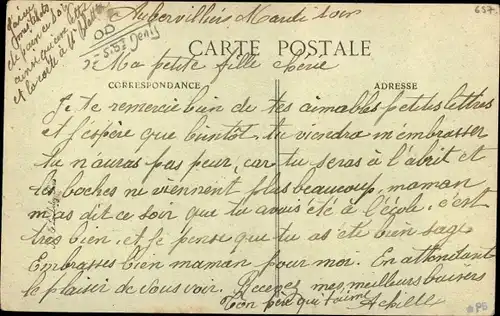 Aubervilliers Mardi soir
657
CARTE POSTALE
Ma petite fille chérie
CORRESPONDANCE
ADRESSE
Je te remercie bien de tes aimables petites lettres
et J'espère que bientot tu viendra m'embrasser
tu n'auras pas peur, car tu seras à l'abrit et
les boches ne viennent plus beaucoup, maman
m'as dit ce soir que tu avais été à l'école, c'est
très bien, et Je pense que tu as été bien sage
Embrasses bien maman pour moi. En attendant
le plaisir de vous voir. Recevez mes meilleurs baisers
Ton père qui t'aime
Achille